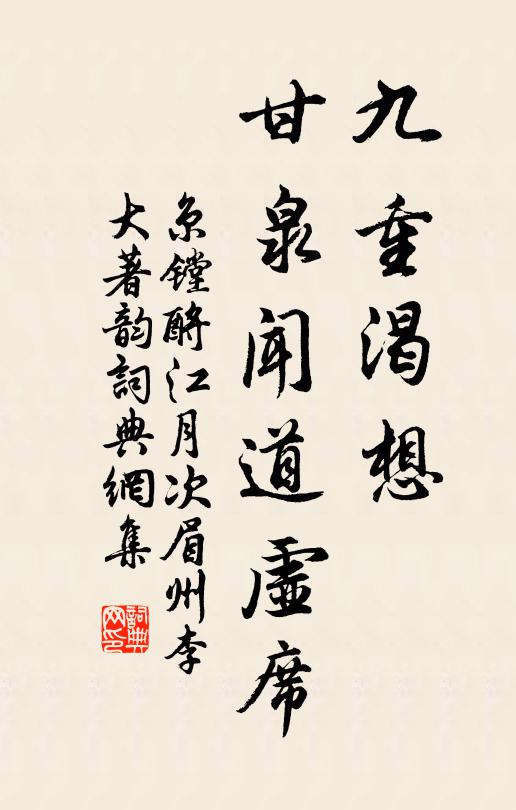 九重渴想
甘泉闻道虚席
京镗酹江月次眉州李
大著韵词典網集
詞典网印